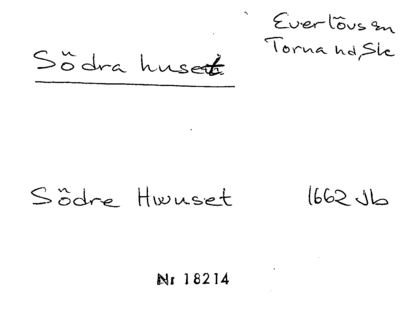 Everlövs sn
Torna hd, Sk
Södra huset
Södre Hwuset 1662 Jb
Nr 18214